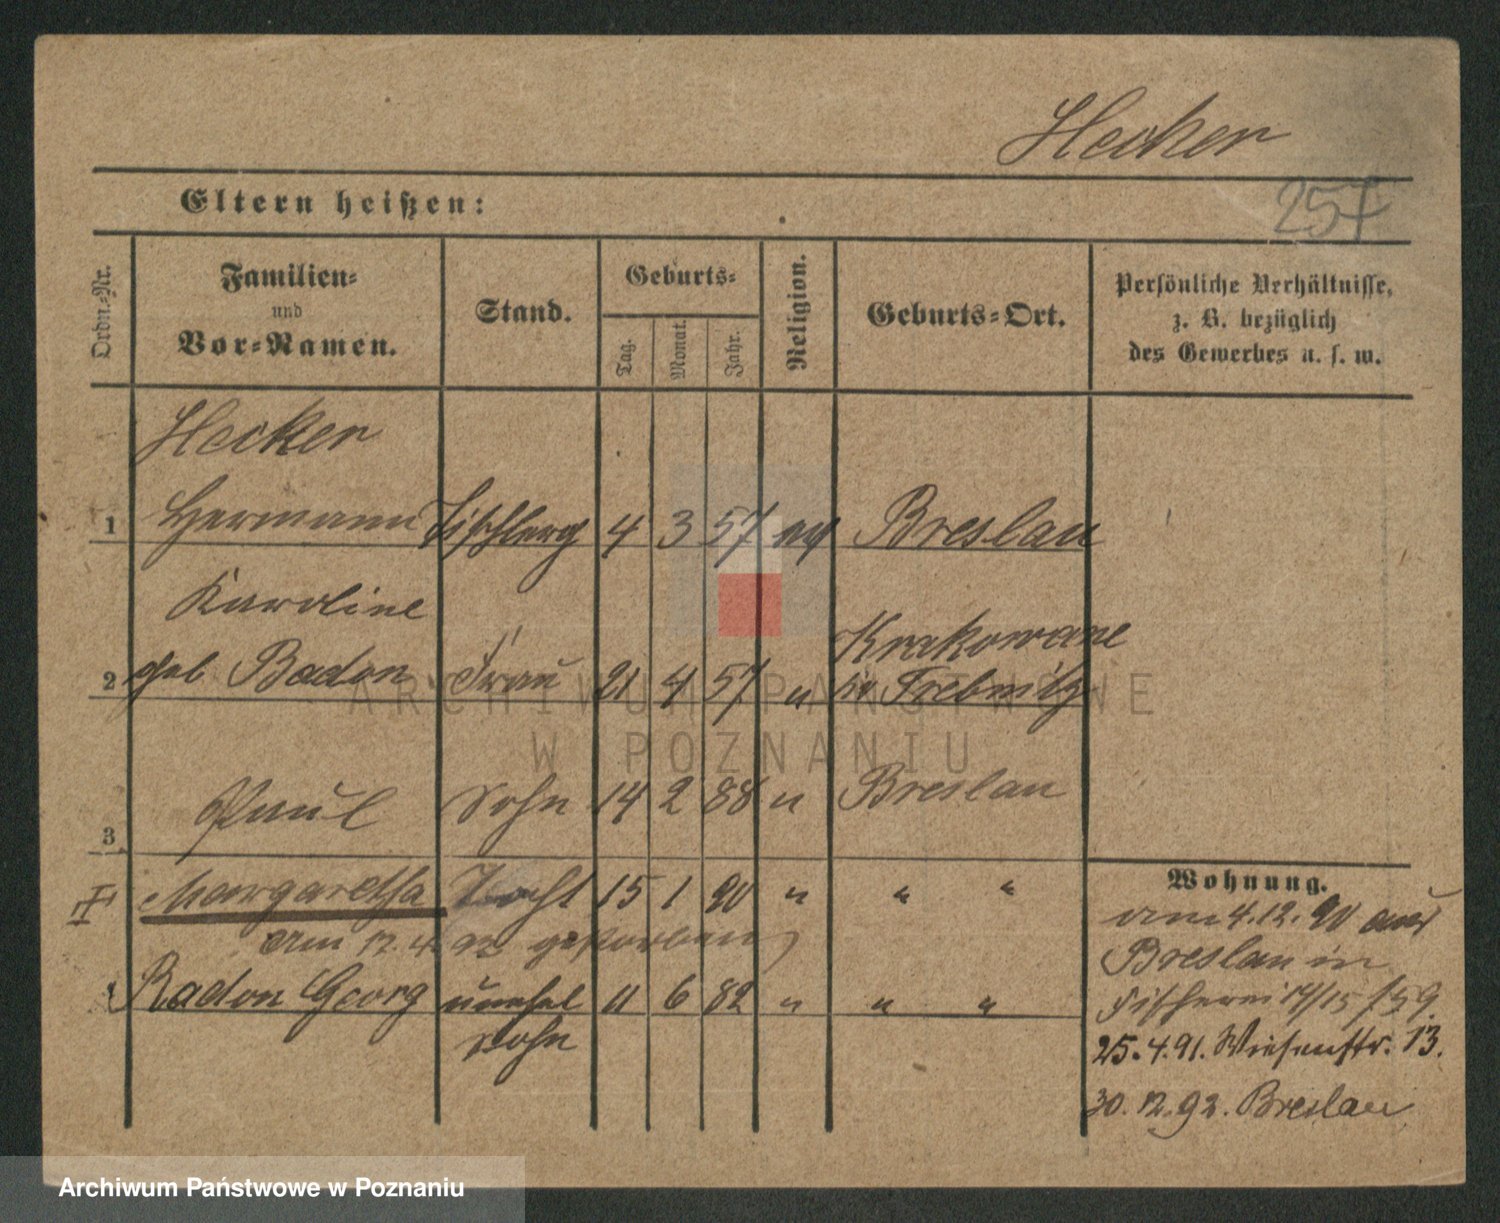 Hecker
257
Eltern heißen:
Ordn.-Nr.
Familien-
und
Vor-Namen.
Stand.
Geburts-
Tag.
Monat.
Jahr.
Religion.
Geburts-Ort.
Persönliche Verhältnisse,
z. B. bezüglich
des Gewerbes u. s. w.
Hecker
1 Hermann Tischlerg 4 3 57 ev Breslau
Karoline
Krakowane
2 geb Badon Frau 21 4 57 " Kr Trebnitz
3 Paul Sohn 14 2 88 " Breslau
Margaretha Tocht 15 1 90 " " "
am 12. 4. 92 gestorben
Radon Georg unehel 11 6 82 " " "
Sohn
Wohnung.
am 4.12.90 aus
Breslau in
Fischerei 14/15
25.4.91. Wiesenstr. 13.
30.12.92. Breslau
ARCHIWUM PAŃSTWOWE
W POZNANIU
Archiwum Państwowe w Poznaniu